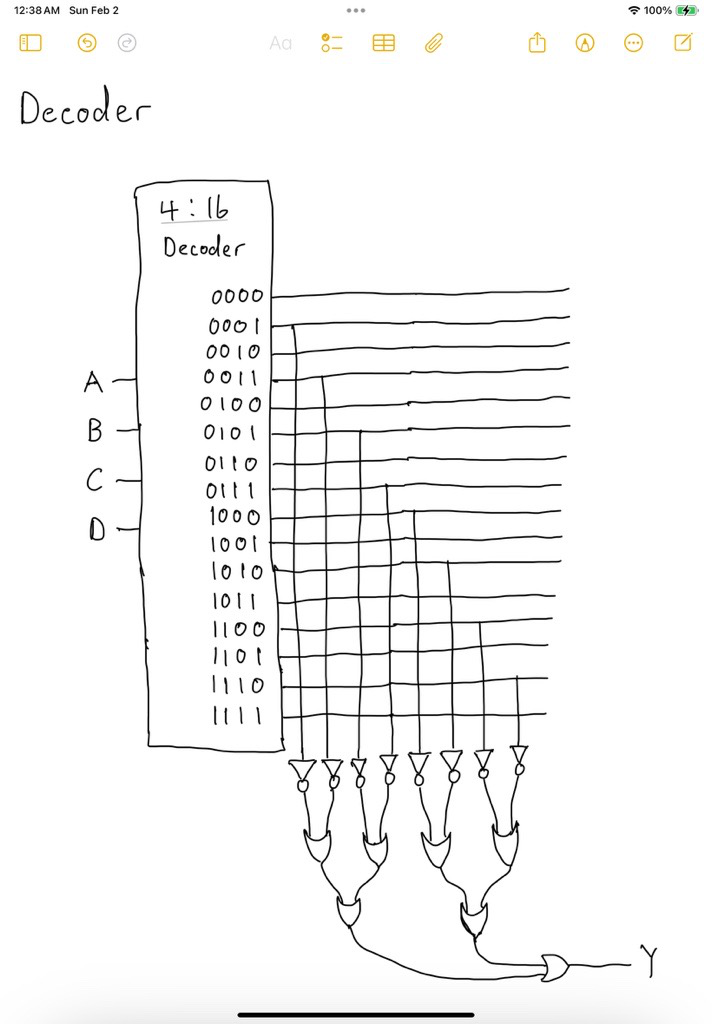 12:38 AM Sun Feb 2
100%
Aa
Decoder
4:16
Decoder
0000
0001
0010
A
0011
0100
B
0101
0110
C
0111
1000
D
1001
1010
1011
1100
1101
1110
1111
Y